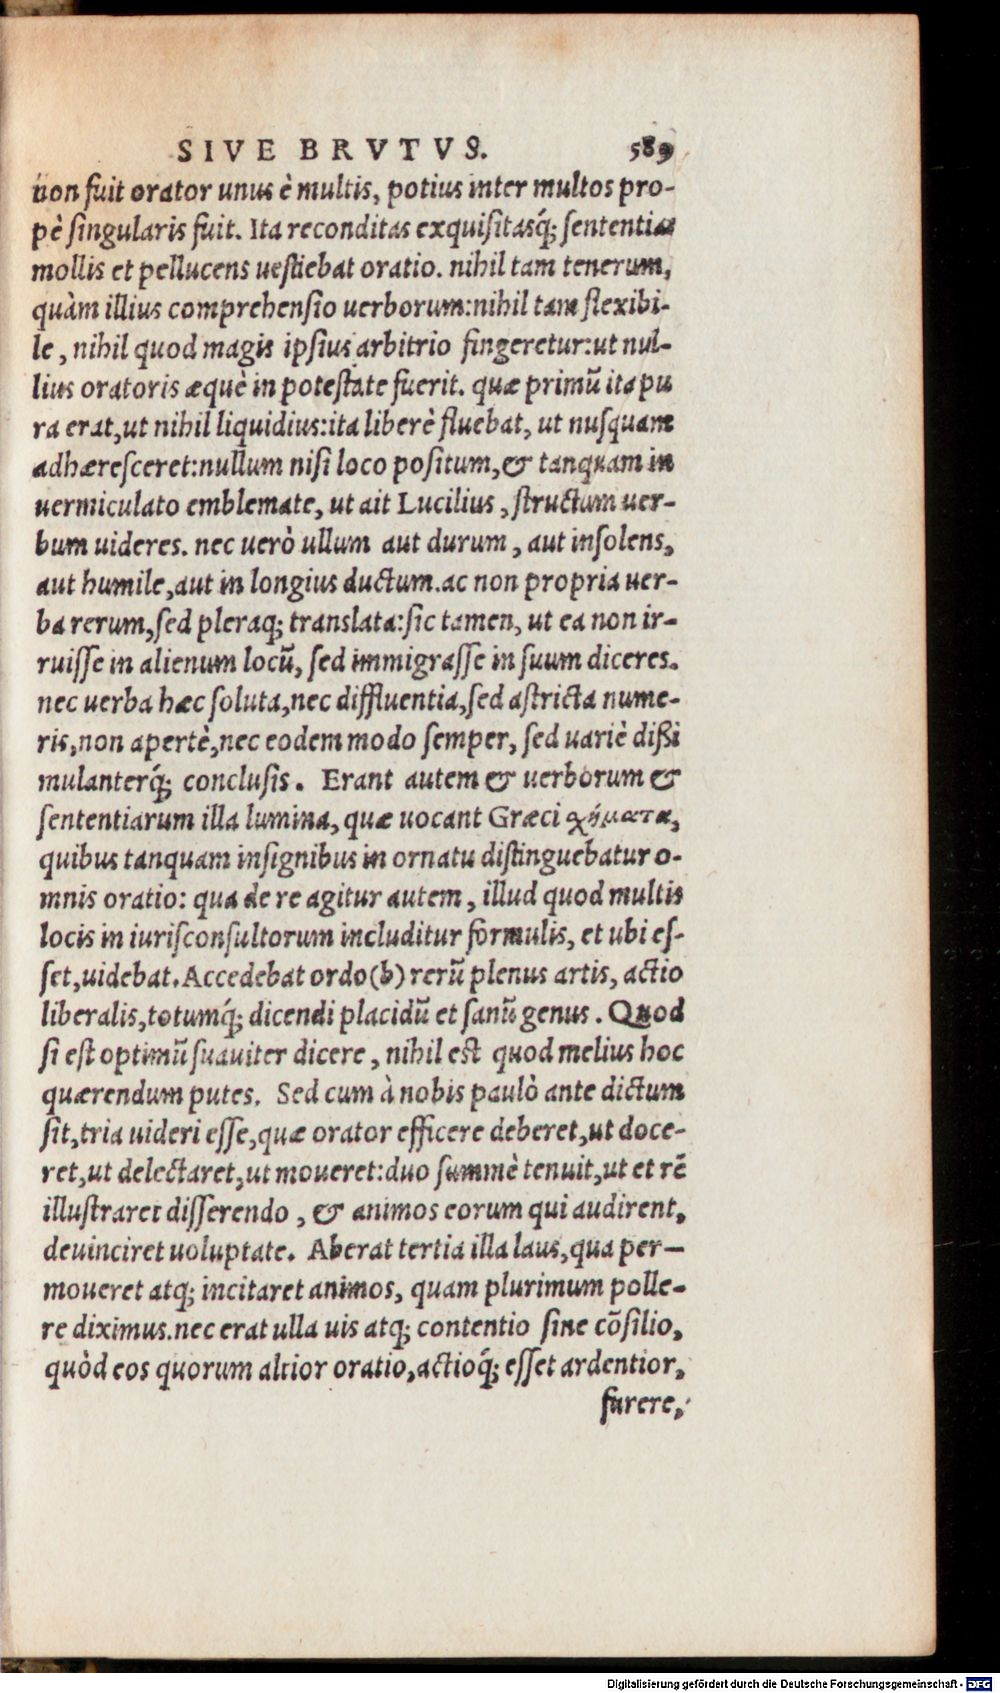 SIVE BRVTVS. 589
non fuit orator unus è multis, potius inter multos pro-
pè singularis fuit. Ita reconditas exquisitasq́; sententias
mollis et pellucens uestiebat oratio. nihil tam tenerum,
quàm illius comprehensio uerborum:nihil tam flexibi-
le, nihil quod magis ipsius arbitrio fingeretur:ut nul-
lius oratoris æquè in potestate fuerit. quæ primũ ita pu
ra erat,ut nihil liquidius:ita liberè fluebat, ut nusquam
adhæresceret:nullum nisi loco positum,& tanquam in
uermiculato emblemate, ut ait Lucilius, structum uer-
bum uideres. nec uerò ullum aut durum, aut insolens,
aut humile,aut in longius ductum.ac non propria uer-
ba rerum,sed pleraq; translata:sic tamen, ut ea non ir-
ruisse in alienum locũ, sed immigrasse in suum diceres.
nec uerba hæc soluta,nec diffluentia,sed astricta nume-
ris,non apertè,nec eodem modo semper, sed uariè dißi
mulanterq́; conclusis. Erant autem & uerborum &
sententiarum illa lumina, quæ uocant Græci χήματα,
quibus tanquam insignibus in ornatu distinguebatur o-
mnis oratio: qua de re agitur autem, illud quod multis
locis in iurisconsultorum includitur formulis, et ubi es-
set,uidebat.Accedebat ordo(b)rerũ plenus artis, actio
liberalis,totumq́; dicendi placidũ et sanũ genus. Quod
si est optimũ suauiter dicere, nihil est quod melius hoc
quærendum putes. Sed cum à nobis paulò ante dictum
sit,tria uideri esse,quæ orator efficere deberet,ut doce-
ret,ut delectaret,ut moueret:duo summè tenuit,ut et rẽ
illustraret disserendo, & animos eorum qui audirent,
deuinciret uoluptate. Aberat tertia illa laus,qua per-
moueret atq; incitaret animos, quam plurimum polle-
re diximus.nec erat ulla uis atq; contentio sine cõsilio,
quòd eos quorum altior oratio,actioq́; esset ardentior,
furere,
Digitalisierung gefördert durch die Deutsche Forschungsgemeinschaft - DFG